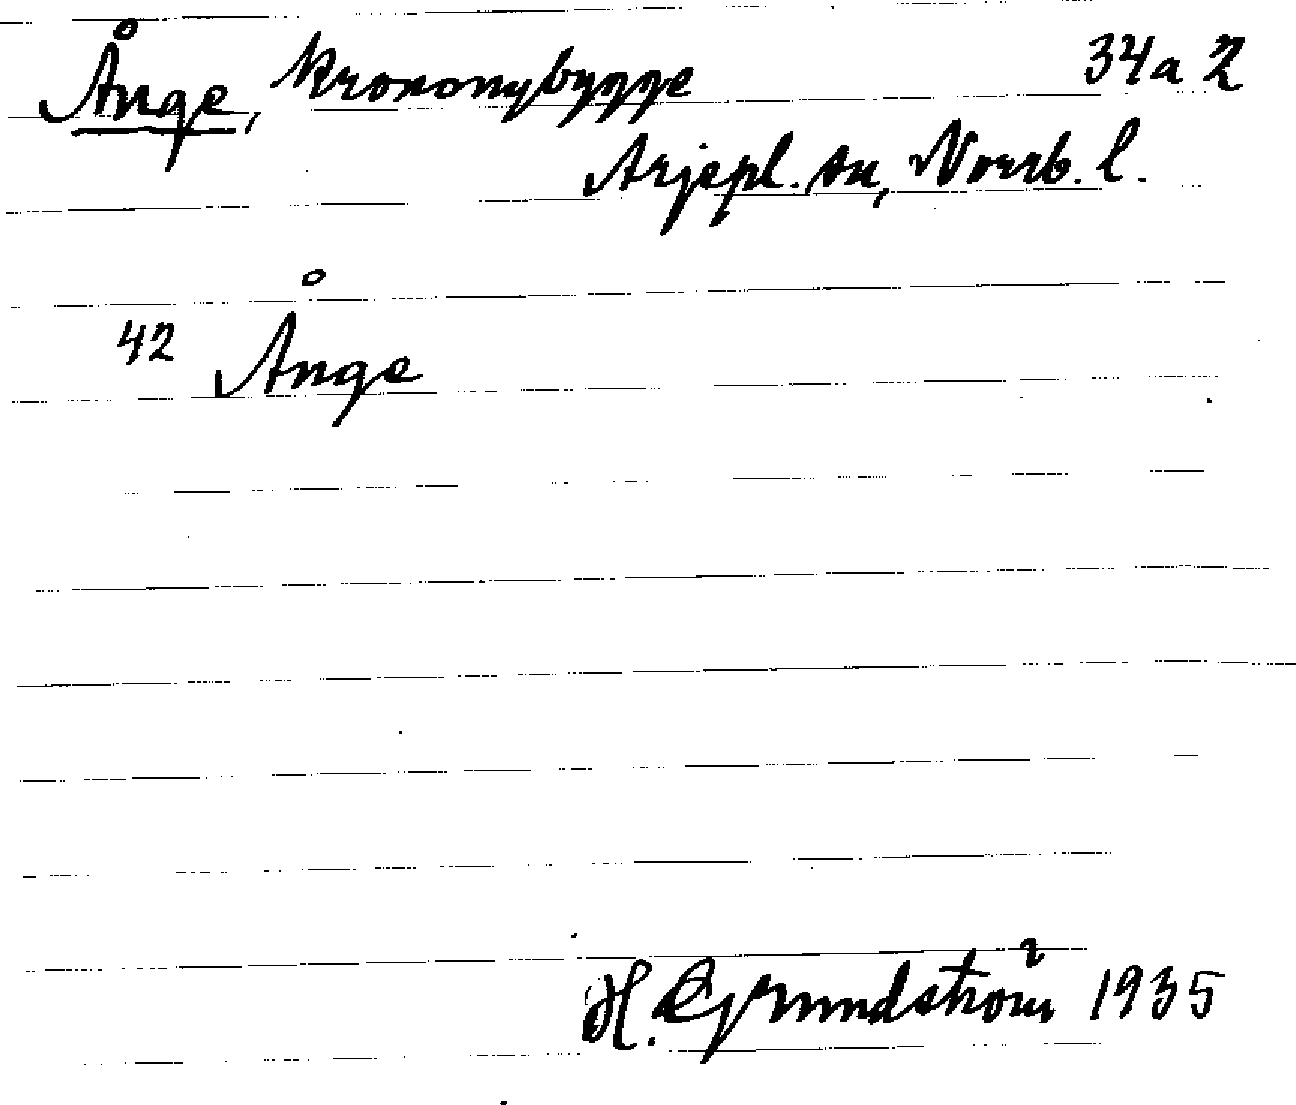 Ånge, kronony bygge 34a Z
Arjepl. sn, Norrb. l.
42 Ånge
H. Grundström 1935